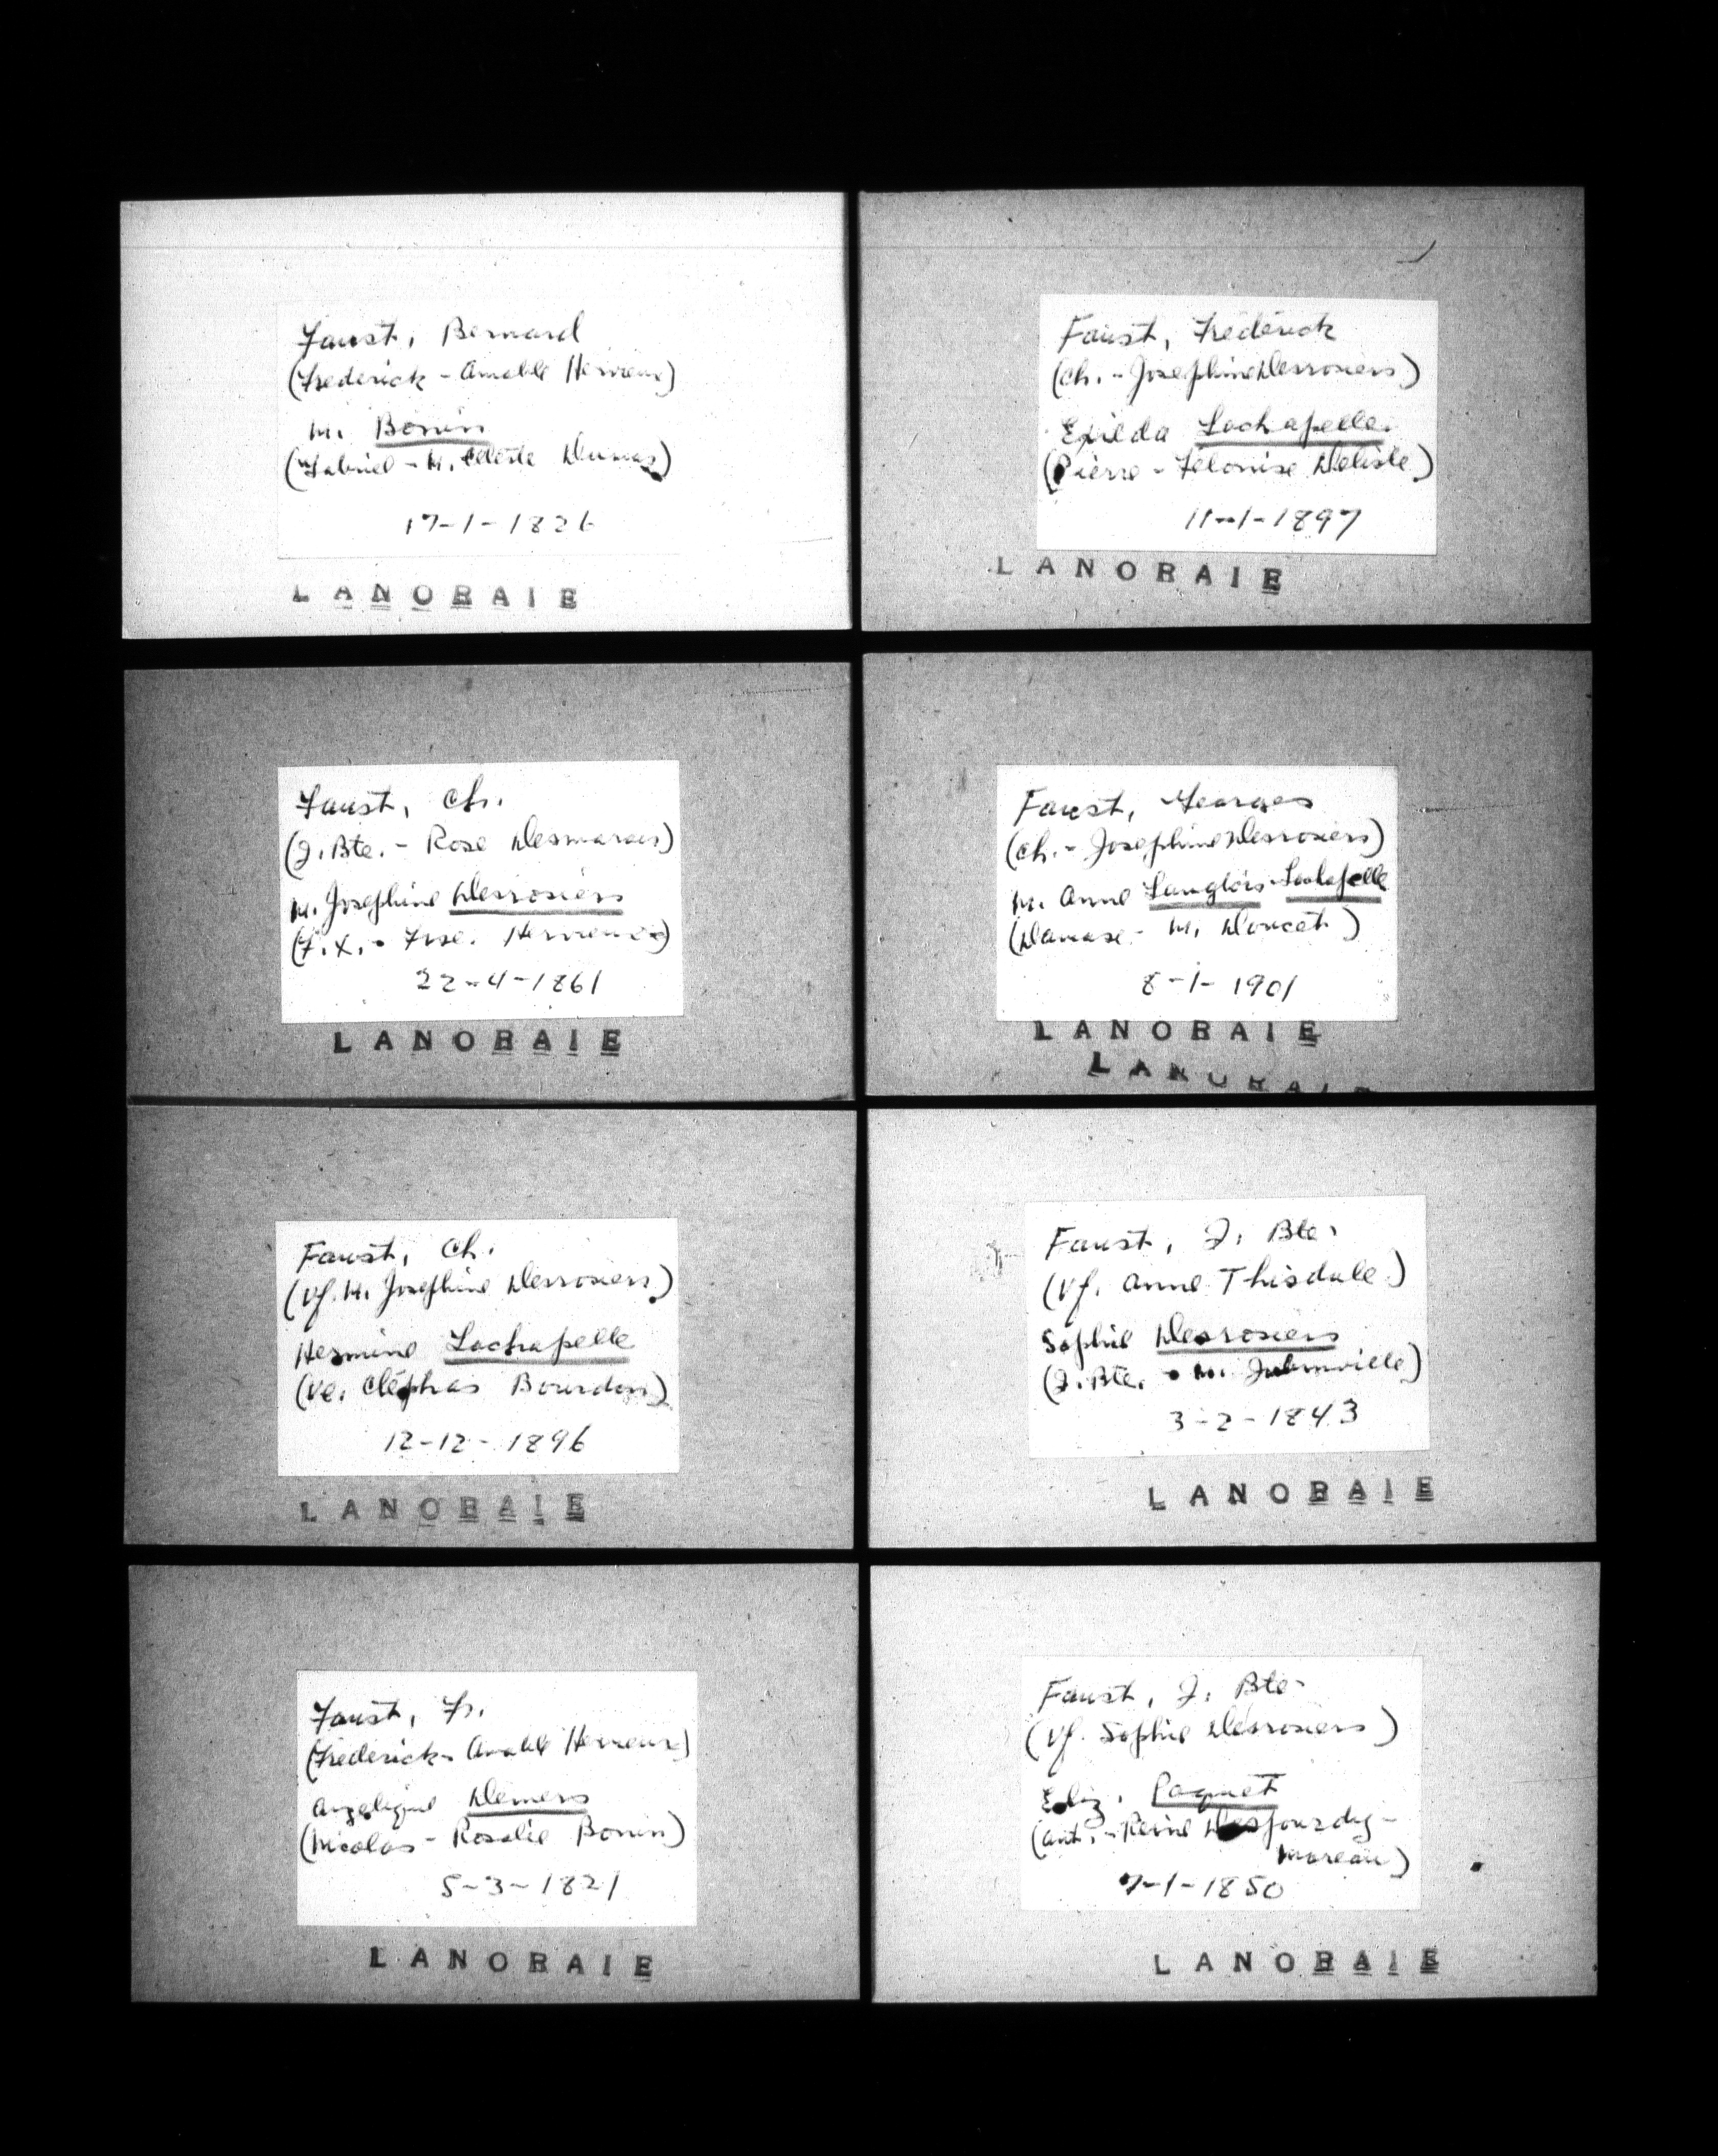 Faust, Bernard
(Frederick - Amable Hervieux)
M. Bonin
(Gabriel - M. Celeste Dumas)
17-1-1826
LANORAIE
Faust, Frederick
(Ch. - Josephine Desrosiers)
Exilda Lachapelle
(Pierre - Zelonise Delisle)
11-1-1897
LANORAIE
Faust, Ch.
(J. Bte. - Rose Desmarais)
M. Josephine Desrosiers
(F. X. - Frse. Hervieux)
22-4-1861
LANORAIE
Faust, Georges
(Ch. - Josephine Desrosiers)
M. Anne Langlois-Lachapelle
(Damase - M. Doucet)
8-1-1901
LANORAIE
LANORAIE
Faust, Ch.
(Vf. M. Josephine Desrosiers)
Hermine Lachapelle
(Ve. Cléophas Bourdon)
12-12-1896
LANORAIE
Faust, J. Bte.
(Vf. Anne Thisdale)
Sophie Desrosiers
(J. Bte. - M. Jubinville)
3-2-1843
LANORAIE
Faust, Fr.
(Frederick - Amable Hervieux)
Angelique Demers
(Nicolas - Rosalie Bonin)
5-3-1821
LANORAIE
Faust, J. Bte.
(Vf. Sophie Desrosiers)
Eliz. Paquet
(Ant. - Reine Desjourdy-
Moreau)
7-1-1850
LANORAIE